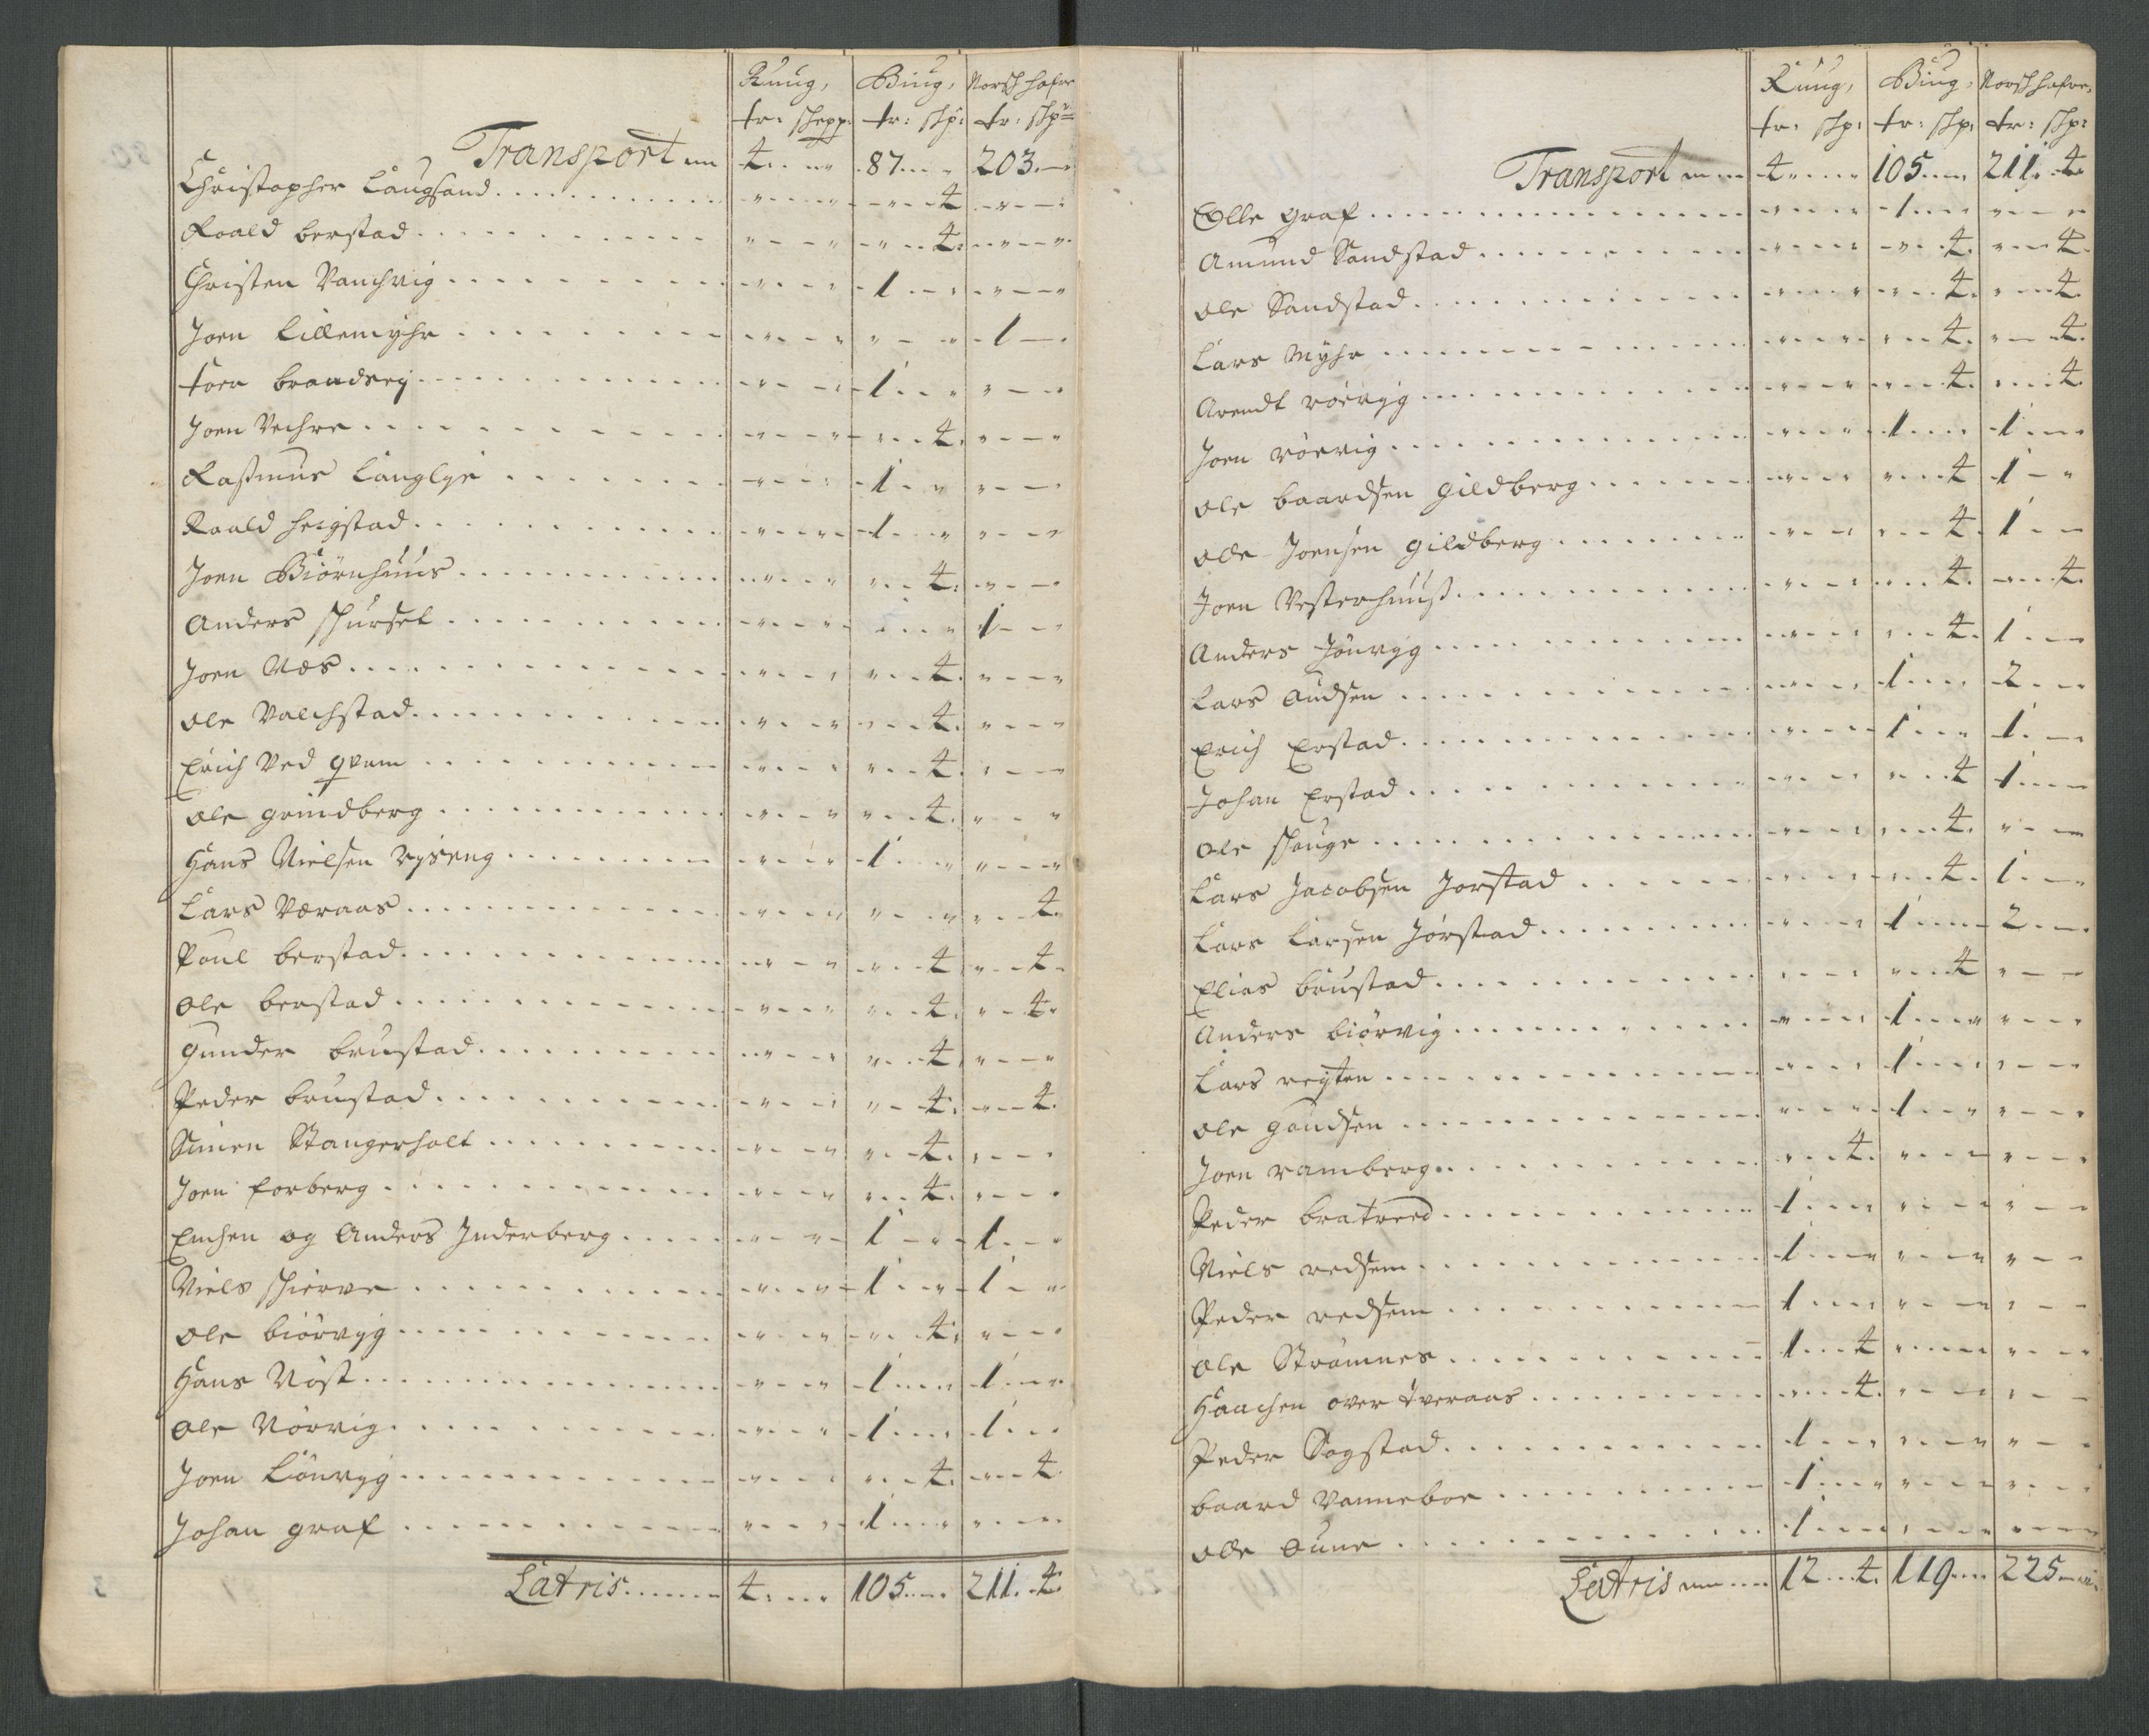 Ruug, Biug, Norsch hafre
tr: schepp: tr: schp: tr: schp:
Transport 4 . . . 87 . . . 203 . —
Christopher Langsand . . . . . . . 4
Roald berstad . . . . . . . 4
Christen Vanchvig . . . . . . . 1
Joen Lillemyhr . . . . . . . 1
toen brandseg . . . . . . . 1
Joen Vechre . . . . . . . 4
Rasmus Langlye . . . . . . . 1
Roald hegstad . . . . . . . 1
Joen Biörnhuus . . . . . . . 4
Anders schursel . . . . . . . 1
Joen Næs . . . . . . . 4
Ole Valchstad . . . . . . . 4
Erich Ved qvam . . . . . . . 4
Ole grindberg . . . . . . . 4
Hans Nielsen ryseng . . . . . . . 1
Lars Væraas . . . . . . . 4
Poul berstad . . . . . . . 4 . . . 4
Ole berstad . . . . . . . 4 . . . 4
Gunder brustad . . . . . . . 4
Peder brustad . . . . . . . 4 . . . 4
Simen Stangerholt . . . . . . . 4
Joen forberg . . . . . . . 4
Enchen og Anders Inderberg . . . . 1 . . . 1
Niels schierve . . . . . . . 1 . . . 1
Ole biörvyg . . . . . . . 4
Hans Nöst . . . . . . . 1 . . . 1
Ole Nörvig . . . . . . . 1 . . . 1
Joen Lönvyg . . . . . . . 4 . . . 4
Johan graf . . . . . . . 1
Latris . . . . 4 . . . 105 . . . 211 . 4
Ruug, Biug, Norsch hafre,
tr: schp: tr: schp: tr: schp:
Transport 4 . . . 105 . . . 211 . 4
Olle graf . . . . . . . 1
Amund Sandstad . . . . . . . 4 . . . 4
Ole Sandstad . . . . . . . 4 . . . 4
Lars Myhr . . . . . . . 4 . . . 4
Arendt röervyg . . . . . . . 4 . . . 4
Joen röervig . . . . . . . 1 . . . 1
Ole baardsen gildberg . . . . . . . 4 . . . 1
Olle Joensen gildberg . . . . . . . 4 . . . 1
Joen Vesterhuus . . . . . . . 4 . . . 4
Anders Jönvyg . . . . . . . 4 . . . 1
Lars Audsen . . . . . . . 1 . . . 2
Erich Erstad . . . . . . . 1 . . . 1
Johan Erstad . . . . . . . 4 . . . 1
Ole schauge . . . . . . . 4
Lars Jacobsen Jorstad . . . . . . . 4 . . . 1
Lars Larsen Jörstad . . . . . . . 1 . . . 2
Elias brustad . . . . . . . 4
Anders biörvig . . . . . . . 1
Lars reyten . . . . . . . 1
Ole gaudsen . . . . . . . 1
Joen ramberg . . . . . . . 4
Peder bratreed . . . . . . . 1
Niels redsem . . . . . . . 1
Peder redsem . . . . . . . 1
Ole Strömnes . . . . . . . 1 . . . 4
Haachen over tveraas . . . . . . . 4
Peder Sogstad . . . . . . . 1
baard Vanneboe . . . . . . . 1
Olle Aune . . . . . . . 1
Latris . . . . 12 . . . 4 . 119 . . . 225